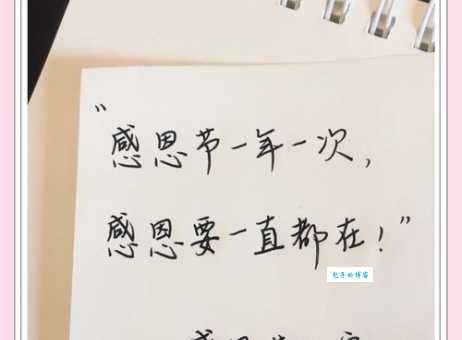 “感恩节一年一次，
感恩要一直都在！”